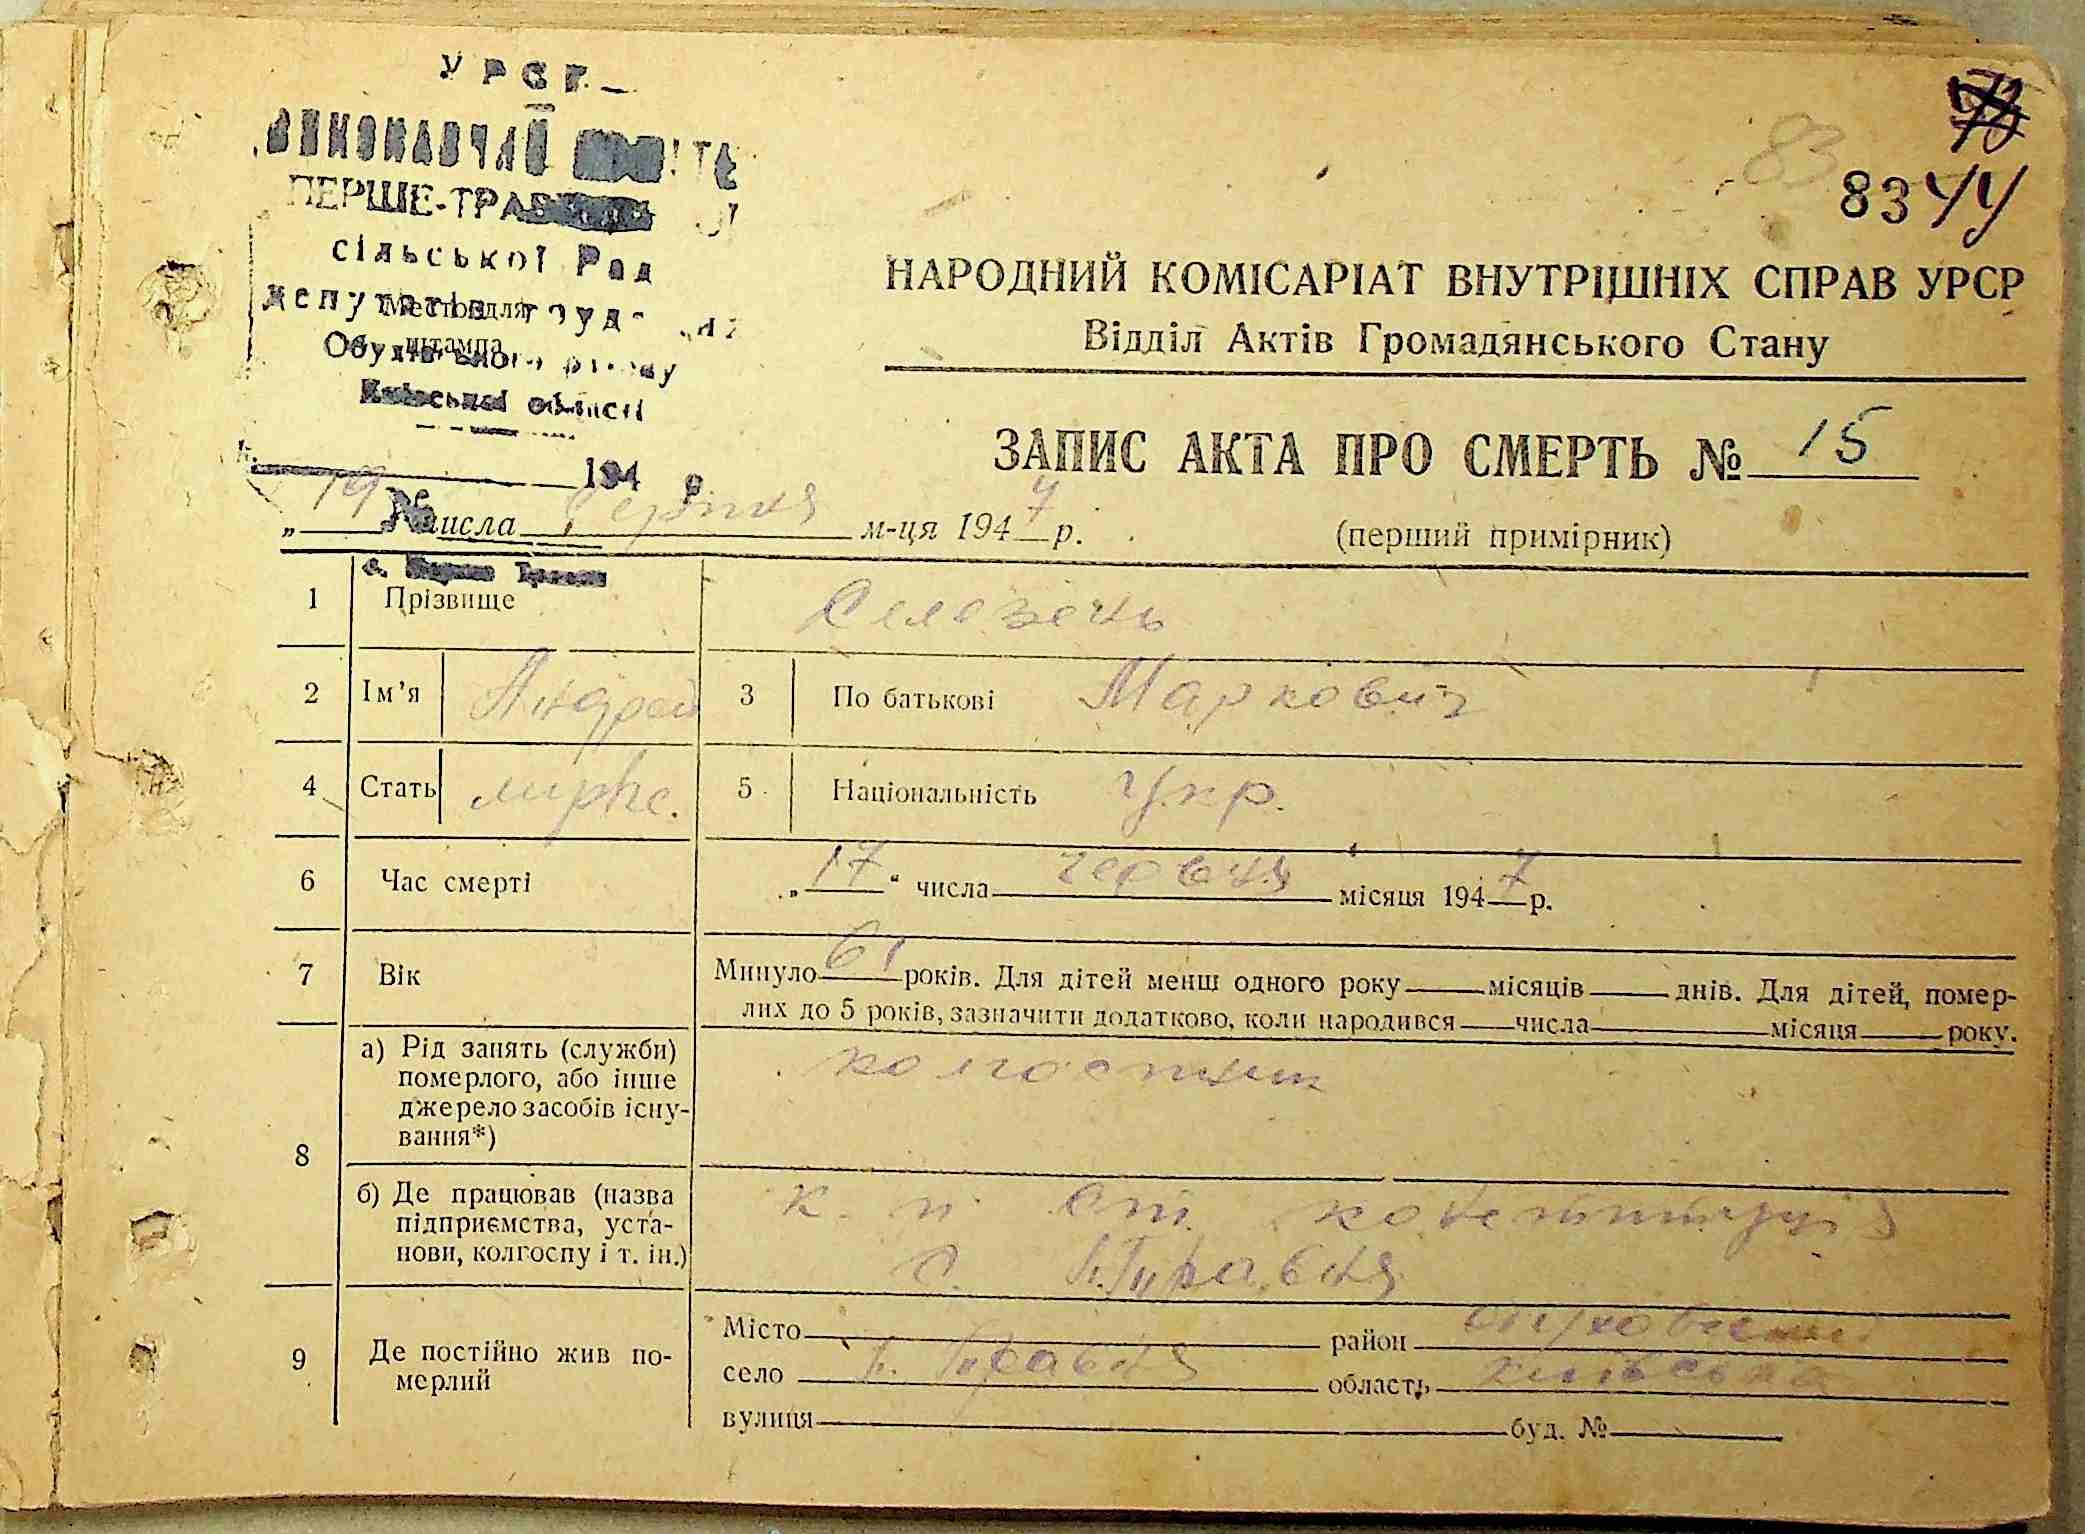 УРСР
ВИКОНАВЧИЙ КОМІТЕ
ПЕРШЕ-ТРАВ
сільської Рад
депутатів труд
Место для
штампа
Обухівського району
Київської області
194 р.
№
83
8344
НАРОДНИЙ КОМІСАРІАТ ВНУТРІШНІХ СПРАВ УРСР
Відділ Актів Громадянського Стану
ЗАПИС АКТА ПРО СМЕРТЬ № 15
(перший примірник)
„ 19 числа серпня м-ця 1947 р.
1 Прізвище Селезень
2 Ім’я Андрей 3 По батькові Маркович
4 Стать 5 Національність Укр.
6 Час смерті „17“ числа червня місяця 1947 р.
7 Вік Минуло 61 років. Для дітей менш одного року місяців днів. Для дітей, помер-
лих до 5 років, зазначити додатково, коли народився числа місяця року.
8 а) Рід занять (служби)
померлого, або інше
джерело засобів існу-
вання*)
колгоспник
б) Де працював (назва
підприємства, уста-
нови, колгоспу і т. ін.)
к. п. ст.
с. П. Травня
9 Де постійно жив по-
мерлий
Місто район
село П. Травня область київська
вулиця буд. №